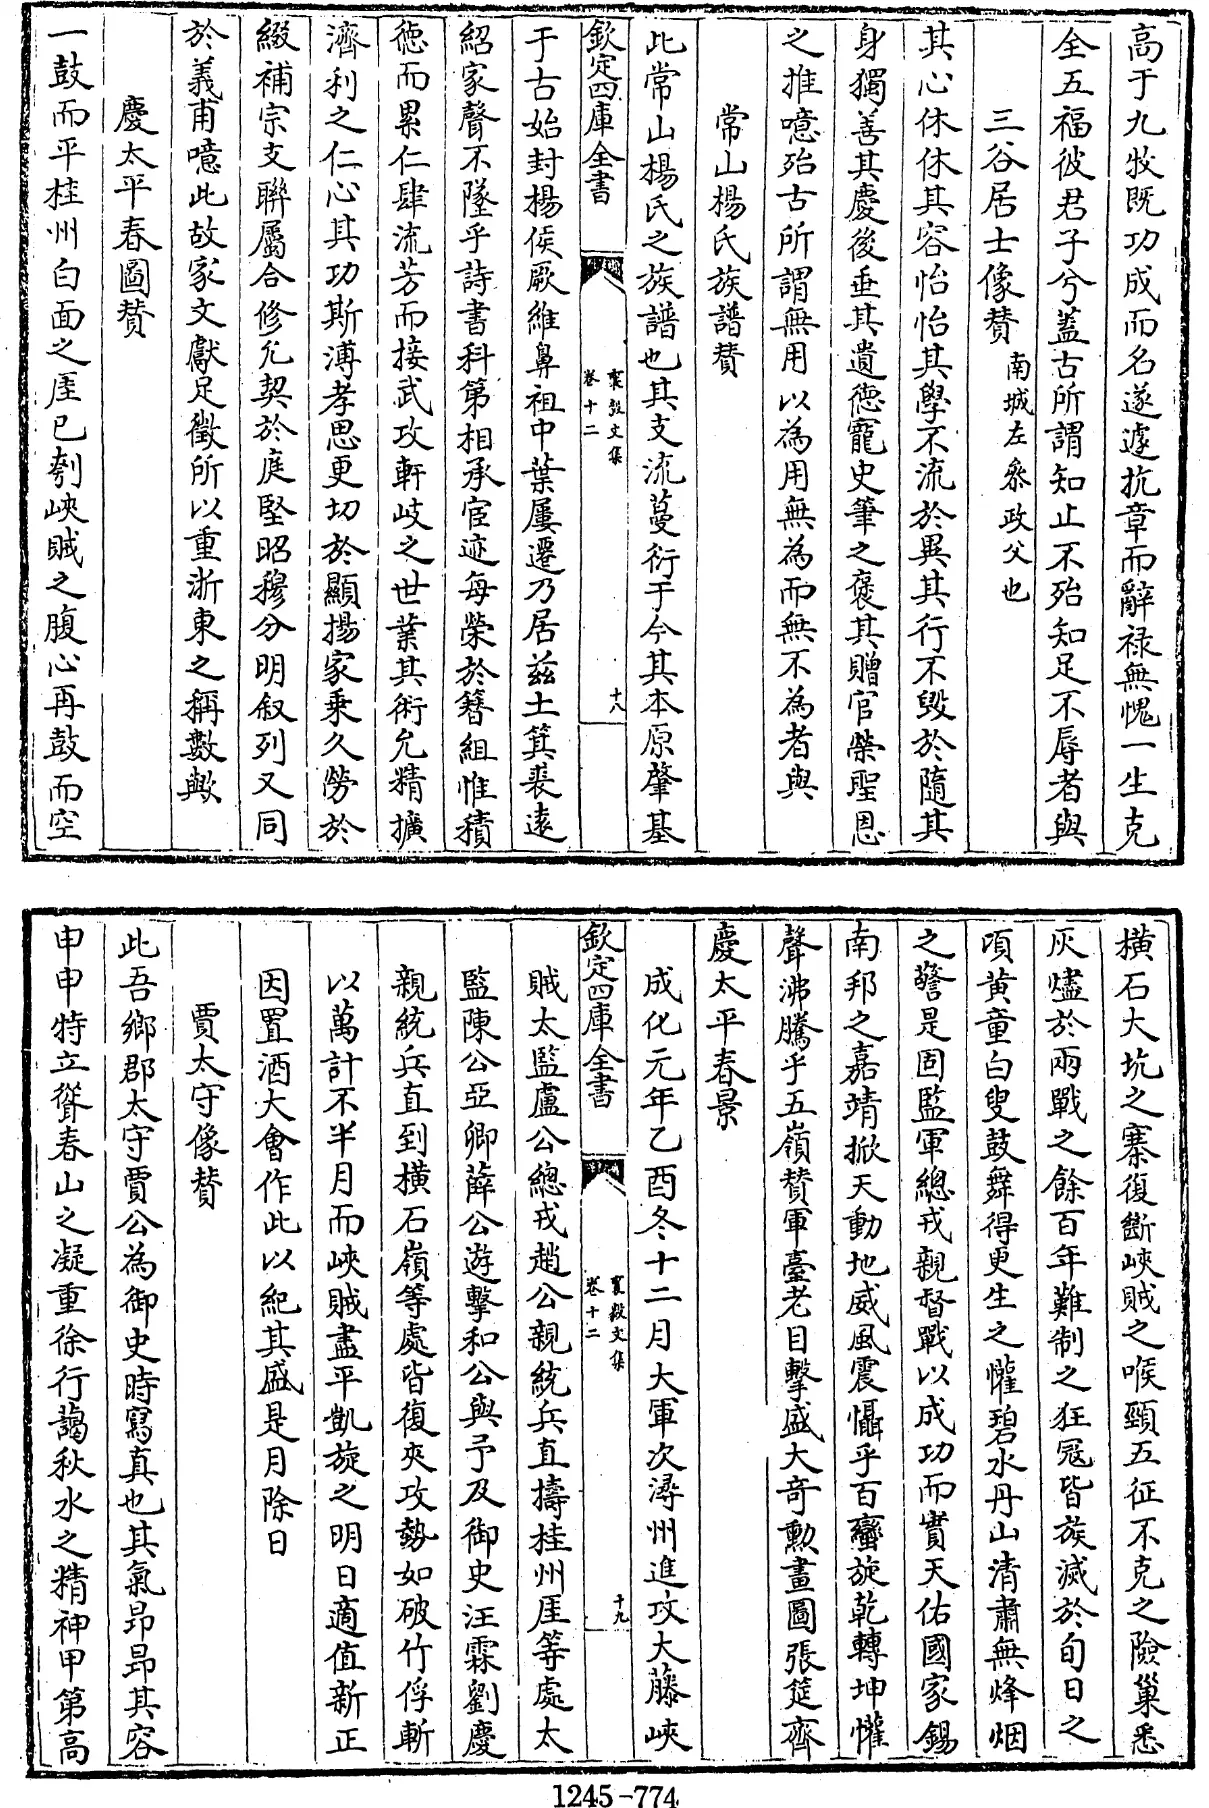 高于九牧既功成而名遂遽抗章而辭禄無愧一生克
全五福彼君子兮蓋古所謂知止不殆知足不辱者與
三谷居士像賛 南城左叅政父也
其心休休其容怡怡其學不流於異其行不毁於隨其
身獨善其慶後垂其遺徳寵史筆之褒其贈官榮聖恩
之推噫殆古所謂無用以為用無為而無不為者與
常山楊氏族譜賛
此常山楊氏之族譜也其支流蔓衍于今其本原肇基
欽定四庫全書
襄毅文集
卷十二
十八
于古始封楊侯厥維鼻祖中葉屢遷乃居兹土箕裘逺
紹家聲不墜乎詩書科第相承宦迹每榮於簪組惟積
徳而累仁肆流芳而接武攻軒岐之世業其術允精擴
濟利之仁心其功斯溥孝思更切於顯揚家乗久勞於
綴補宗支聮屬合修允契於庭堅昭穆分明叙列又同
於義甫噫此故家文獻足徵所以重浙東之稱數歟
慶太平春圖賛
一鼓而平桂州白面之厓已刳峽賊之腹心再鼓而空
横石大坑之寨復斷峽賊之喉頸五征不克之險巢悉
灰燼於兩戰之餘百年難制之狂冦皆族滅於旬日之
頃黄童白叟鼓舞得更生之懽碧水丹山清肅無烽烟
之警是固監軍總戎親督戰以成功而實天佑國家錫
南邦之嘉靖掀天動地威風震懾乎百蠻旋乾轉坤懽
聲沸騰乎五嶺賛軍臺老目擊盛大奇勲畫圖張筵齊
慶太平春景
成化元年乙酉冬十二月大軍次潯州進攻大藤峽
欽定四庫全書
襄毅文集
卷十二
十九
賊太監盧公總戎趙公親統兵直擣桂州厓等處太
監陳公亞卿薛公遊擊和公與予及御史汪霖劉慶
親統兵直到横石嶺等處皆復夾攻勢如破竹俘斬
以萬計不半月而峽賊盡平凱旋之明日適值新正
因置酒大會作此以紀其盛是月除日
賈太守像賛
此吾鄉郡太守賈公為御史時寫真也其氣昂昂其容
申申特立聳春山之凝重徐行藹秋水之精神甲第高
1245-774